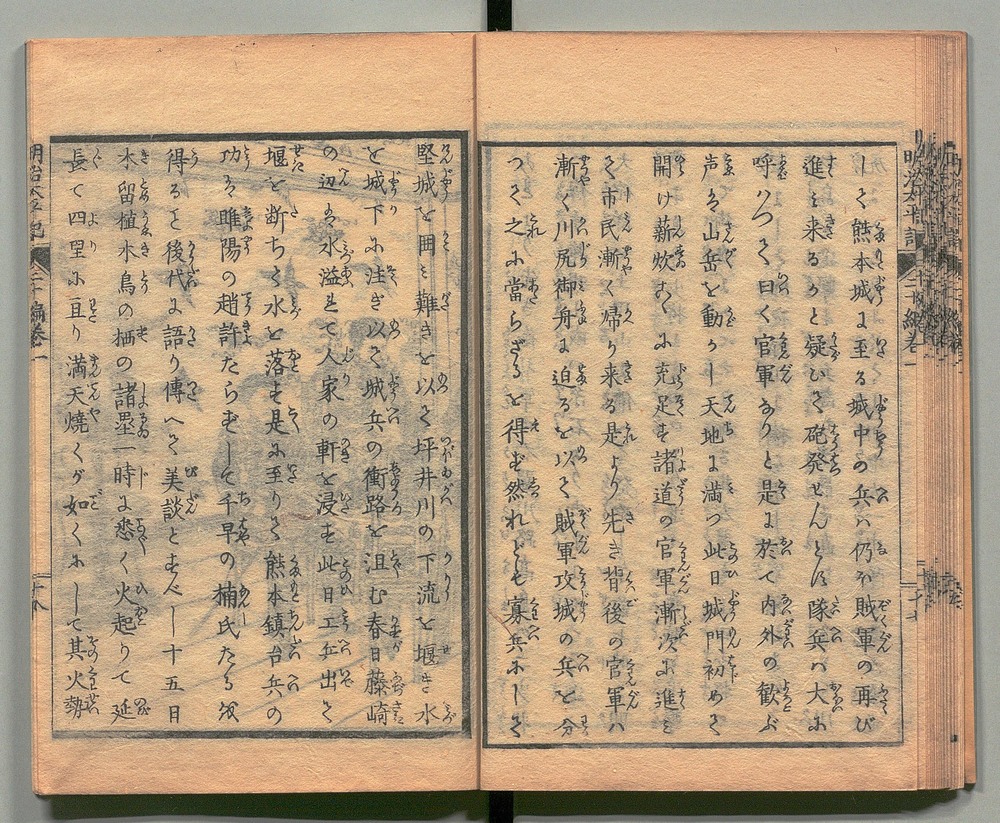 して熊本城に至る城中の兵ハ仍ほ賊軍の再び
進み来るかと疑ひて砲発せんとす隊兵ハ大に
呼ハつて曰く官軍なりと是に於て内外の歓ぶ
声は山岳を動かし天地に満つ此日城門初めて
開け薪炊なくに充足す諸道の官軍漸次に進み
て市民漸く帰り来る是より先き背後の官軍ハ
漸く川尻御舟に迫るを以て賊軍攻城の兵を分
つて之に當らざるを得ず然れども寡兵にして
堅城を囲み難きを以て坪井川の下流を堰き水
を城下に注ぎ以て城兵の衝路を沮む春日藤崎
の辺は水溢れて人家の軒を浸す此日工兵出て
堰を断ちて水を落す是に至りて熊本鎮台兵の
功は睢陽の趙許たらずして千早の楠氏たるを
得ると後代に語り傳へて美談とすべし十五日
木留植木鳥の栖の諸塁一時に悉く火起りて延
長て四里に亘り満天焼くが如くにして其火勢
明治太平記
二十編巻一